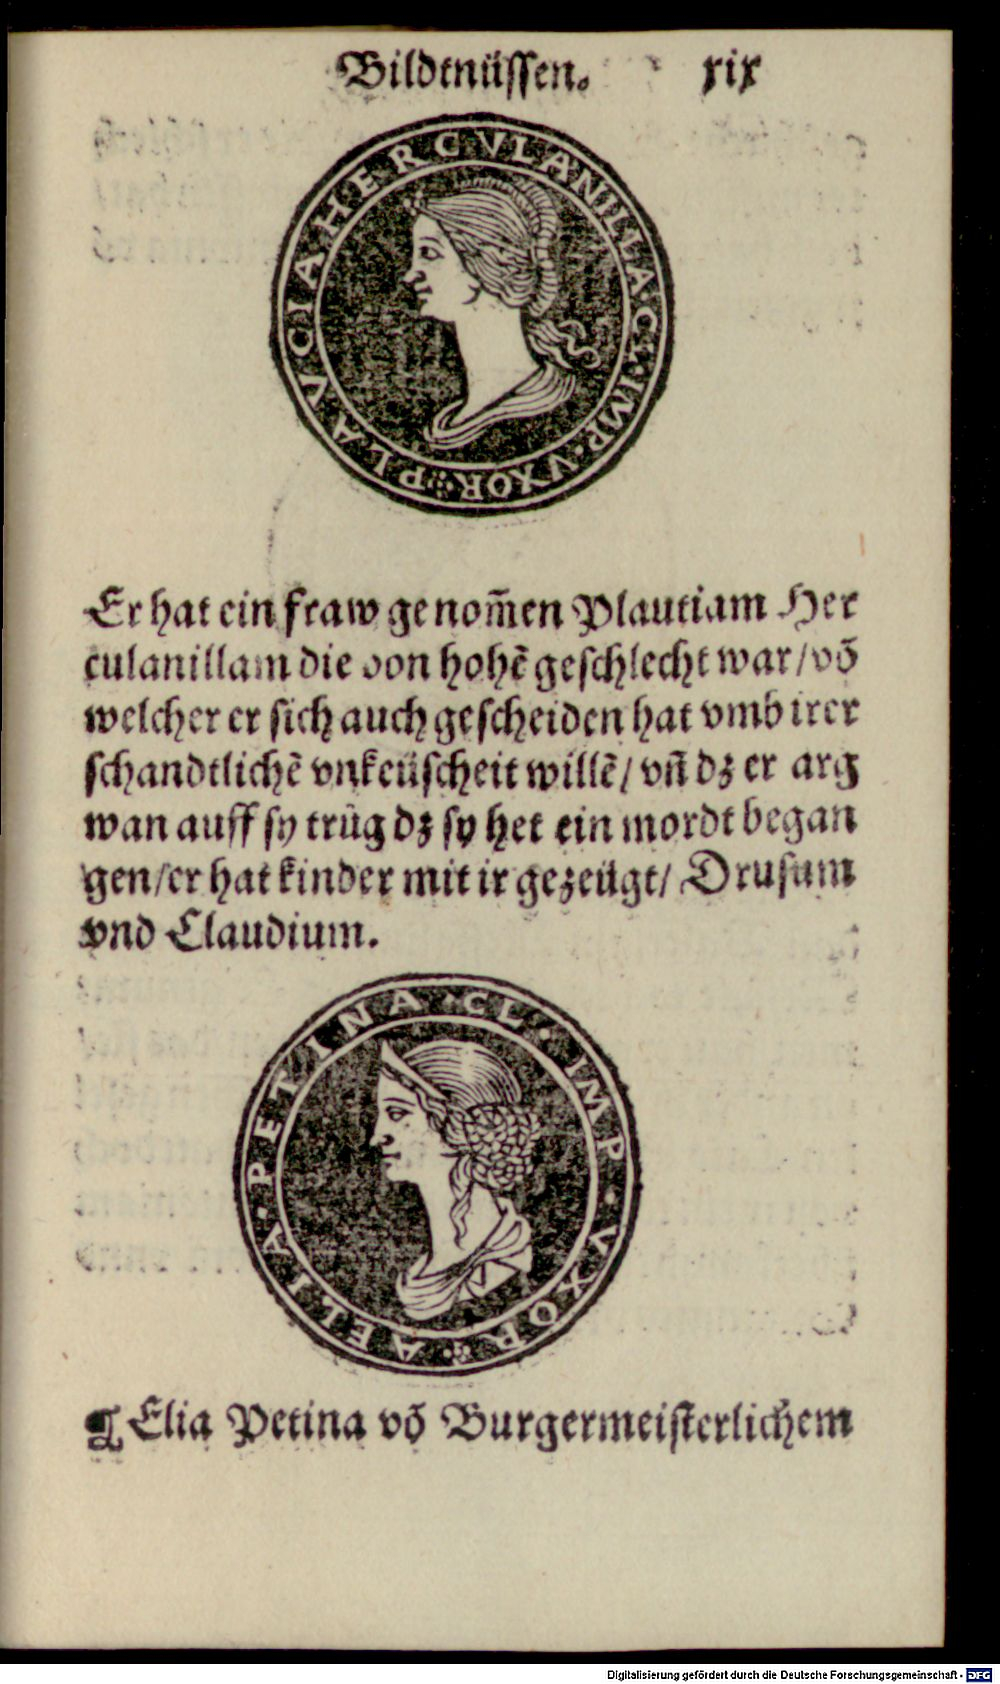 Bildtnüssen. xix
PLAVCIA HERCVLANILLA · CL · IMP · VXOR ·
Er hat ein fraw genom̄en Plautiam Her
culanillam die von hohẽ geschlecht war / võ
welcher er sich auch gescheiden hat vmb irer
schandtlichẽ vnkeüscheit willẽ / vñ dz er arg
wan auff sy trůg dz sy het ein mordt began
gen / er hat kinder mit ir gezeügt / Drusum
vnd Claudium.
AELIA · PETINA · CL · IMP · VXOR
¶ Elia Petina võ Burgermeisterlichem
Digitalisierung gefördert durch die Deutsche Forschungsgemeinschaft - DFG